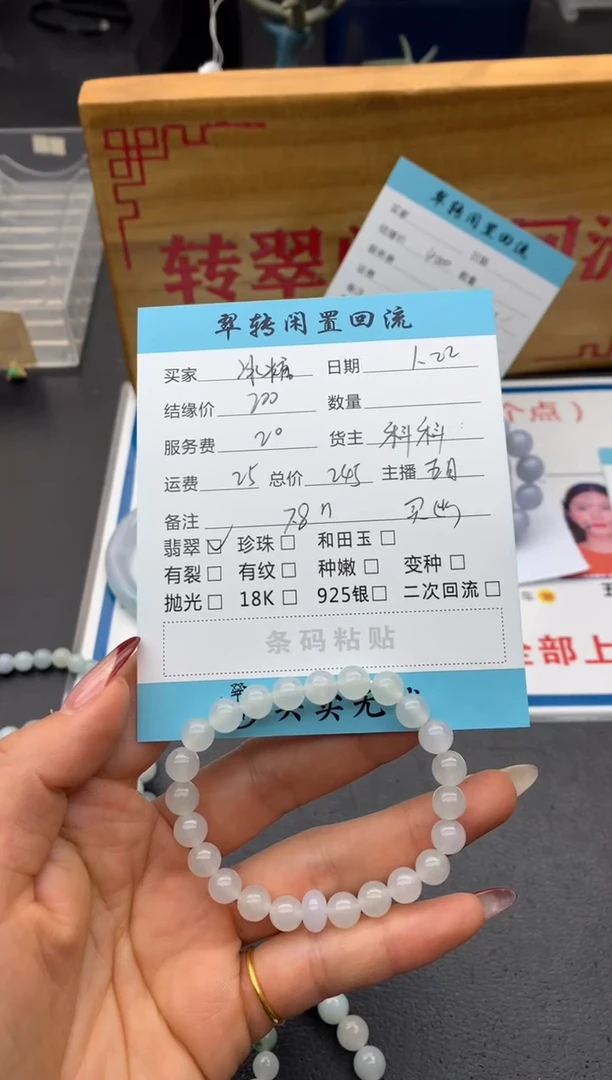 翠转闲置回流
买家
日期
结缘价 400 数量
服务费
运费
转翠
翠转闲置回流
买家 冰糖 日期 1.22
结缘价 200 数量
服务费 20 货主 科科
运费 25 总价 245 主播 五月
备注 7.8
翡翠☑ 珍珠□ 和田玉□
有裂□ 有纹□ 种嫩□ 变种□
抛光□ 18K□ 925银□ 二次回流□
条码粘贴
个点）
全部上